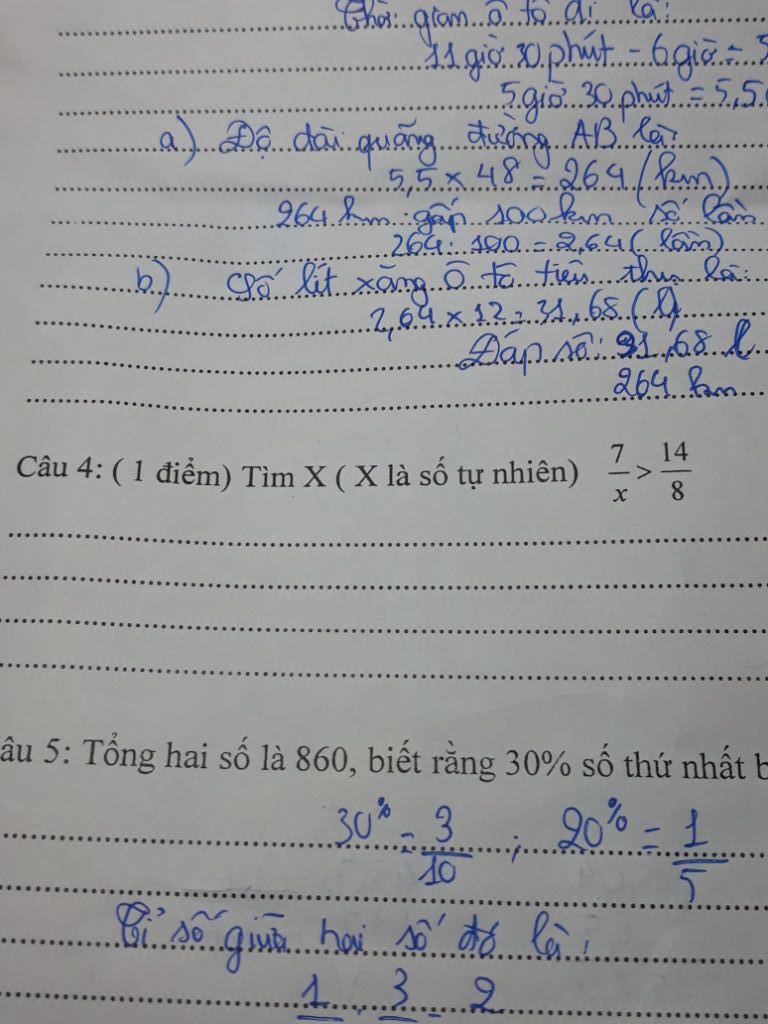 Thời gian ô tô đi là:
11 giờ 30 phút - 6 giờ = 5
5 giờ 30 phút = 5,5
a) Độ dài quãng đường AB là:
5,5 × 48 = 264 (km)
264 km gấp 100 km số lần
264 : 100 = 2,64 (lần)
b) Số lít xăng ô tô tiêu thụ là:
2,64 × 12 = 31,68 (l)
Đáp số: 31,68 l
264 km
Câu 4: ( 1 điểm) Tìm X ( X là số tự nhiên) 7/x > 14/8
âu 5: Tổng hai số là 860, biết rằng 30% số thứ nhất b
30% = 3/10 ; 20% = 1/5
Tỉ số giữa hai số đó là:
1 : 3 = 2